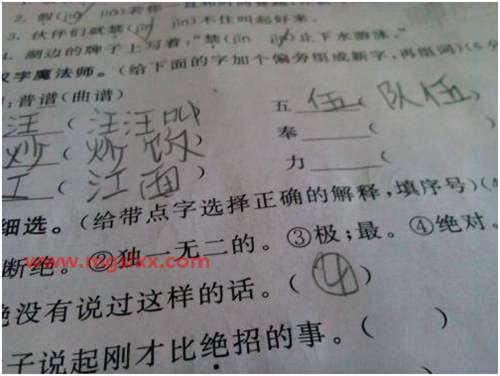 2. 假(jiǎ jià)若你一直
3. 伙伴们就禁(jīn jìn)不住叫起好来。
4. 湖边的牌子上写着,“禁(jīn jìn)止下水游泳。”
汉字魔法师。(给下面的字加个偏旁组成新字,再组词)(6分
:普谱(曲谱) 五 伍 ( 队伍 )
汪 ( 汪汪叫 奉 (
炒 ( 炒饭 力 (
工 ( 江面 )
细选。(给带点字选择正确的解释,填序号)(4
断绝。②独一无二的。③极;最。④绝对。
绝没有说过这样的话。( ④ )
子说起刚才比绝招的事。( )